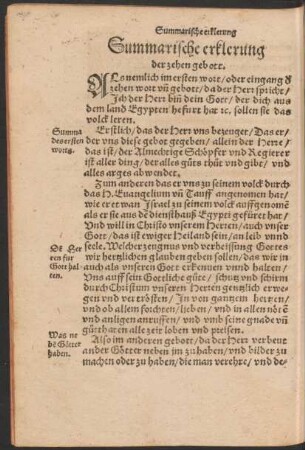 Summarische erklerung
Summarische erklerung
der zehen gebott.
ALs nemlich im ersten wort / oder eingang d
zehen wort vñ gebott / da der Herr spricht /
Ich der Herr biñ dein Gott / der dich aus
dem land Egypten hefurt hat ꝛc. sollen sie das
volck leren.
Summa
des ersten
worts.
Erstlich / das der Herr vns bezeuget / Das er /
der vns diese gebot gegeben / allein der Herre /
das ist / der Almechtige Schöpfer vnd Regierer
ist aller ding / der alles gůts thůt vnd gibt / vnd
alles arges abwendet.
Zum anderen das er vns zu seinem volck durch
das H. Euangelium vñ Tauff angenomen hat /
wie er etwan Israel zu seinem volck auffgenomẽ
als er sie aus dẽ diensthauß Egypti gefüret hat /
Vnd will in Christo vnserem Herren / auch vnser
Gott / das ist ewiger Heiland sein / an leib vnnd
seele. Welcher zeugnus vnd verheissung Gottes
wir hertzlichen glauben geben sollen / das wir in
auch als vnseren Gott erkennen vnd halten /
Vns auff sein Goetliche güte / schutz vnd schirm
durch Christum vnseren Herren gentzlich erwe-
gen vnd vertrösten / In von gantzem hertzen /
vnd ob allem forchten / lieben / vnd in allen nöten
vnd anligen anruffen / vnd vmb seine gnade vñ
gůtthaten alle zeit loben vnd preisen.
Dẽ Her
ren fur
Gott hal-
ten.
Was ne
bẽ Götter
haben.
Also im anderen gebott / da der Herr verbeut
ander Götter neben im zuhaben / vnd bilder zu
machen oder zu haben / die man verehre / vnd de-